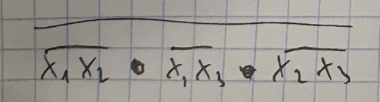 $\overline{\overline{x_1 x_2} \bullet \overline{x_1 x_3} \bullet \overline{x_2 x_3}}$